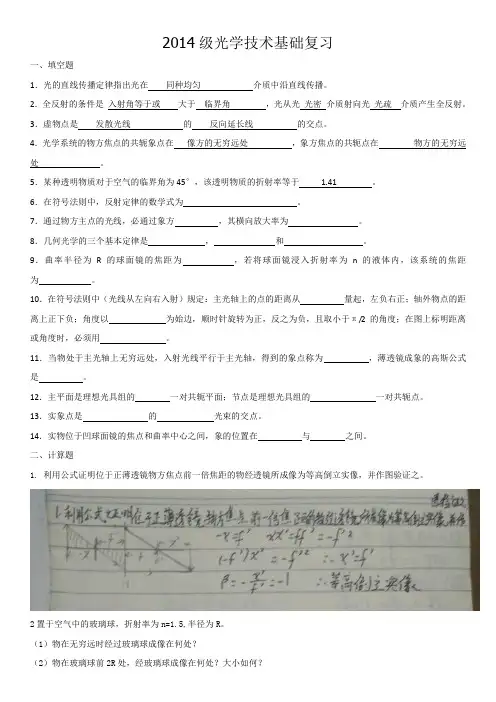 2014级光学技术基础复习
一、填空题
1．光的直线传播定律指出光在 同种均匀 介质中沿直线传播。
2．全反射的条件是 入射角等于或 大于 临界角 ，光从光 光密 介质射向光 光疏 介质产生全反射。
3．虚物点是 发散光线 的 反向延长线 的交点。
4．光学系统的物方焦点的共轭象点在 像方的无穷远处 ，象方焦点的共轭点在 物方的无穷远
处 。
5．某种透明物质对于空气的临界角为45°，该透明物质的折射率等于 1.41 。
6．在符号法则中，反射定律的数学式为 。
7．通过物方主点的光线，必通过象方 ，其横向放大率为 。
8．几何光学的三个基本定律是 ， 和 。
9．曲率半径为R的球面镜的焦距为 ，若将球面镜浸入折射率为n的液体内，该系统的焦距
为 。
10．在符号法则中（光线从左向右入射）规定：主光轴上的点的距离从 量起，左负右正；轴外物点的距
离上正下负；角度以 为始边，顺时针旋转为正，反之为负，且取小于π/2的角度；在图上标明距离
或角度时，必须用 。
11．当物处于主光轴上无穷远处，入射光线平行于主光轴，得到的象点称为 ，薄透镜成象的高斯公式
是 。
12．主平面是理想光具组的 一对共轭平面；节点是理想光具组的 一对共轭点。
13．实象点是 的 光束的交点。
14．实物位于凹球面镜的焦点和曲率中心之间，象的位置在 与 之间。
二、计算题
1. 利用公式证明位于正薄透镜物方焦点前一倍焦距的物经透镜所成像为等高倒立实像，并作图验证之。
-x=f' xx'=ff'=-f'²
(-f')x'=-f'² ∴x'=f'
β=-x'/f'=-1 ∴等高倒立实像
2置于空气中的玻璃球，折射率为n=1.5,半径为R。
（1）物在无穷远时经过玻璃球成像在何处？
（2）物在玻璃球前2R处，经玻璃球成像在何处？大小如何？